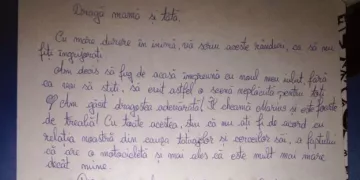 Dragă mamă și tată,
Cu mare durere în inimă, vă scriu aceste rânduri, ca să nu
fiți îngrijorați.
Am decis să fug de acasă împreună cu noul meu iubit, fără
ca voi să știți, să evit astfel o scenă neplăcută pentru toți.
Am găsit dragostea adevărată! Îl cheamă Marius și este foarte
de treabă! Cu toate acestea, știu că nu ați fi de acord cu
relația noastră din cauza tatuajelor și cerceilor săi, a faptului
că are o motocicletă și mai ales că este mult mai mare
decât mine.